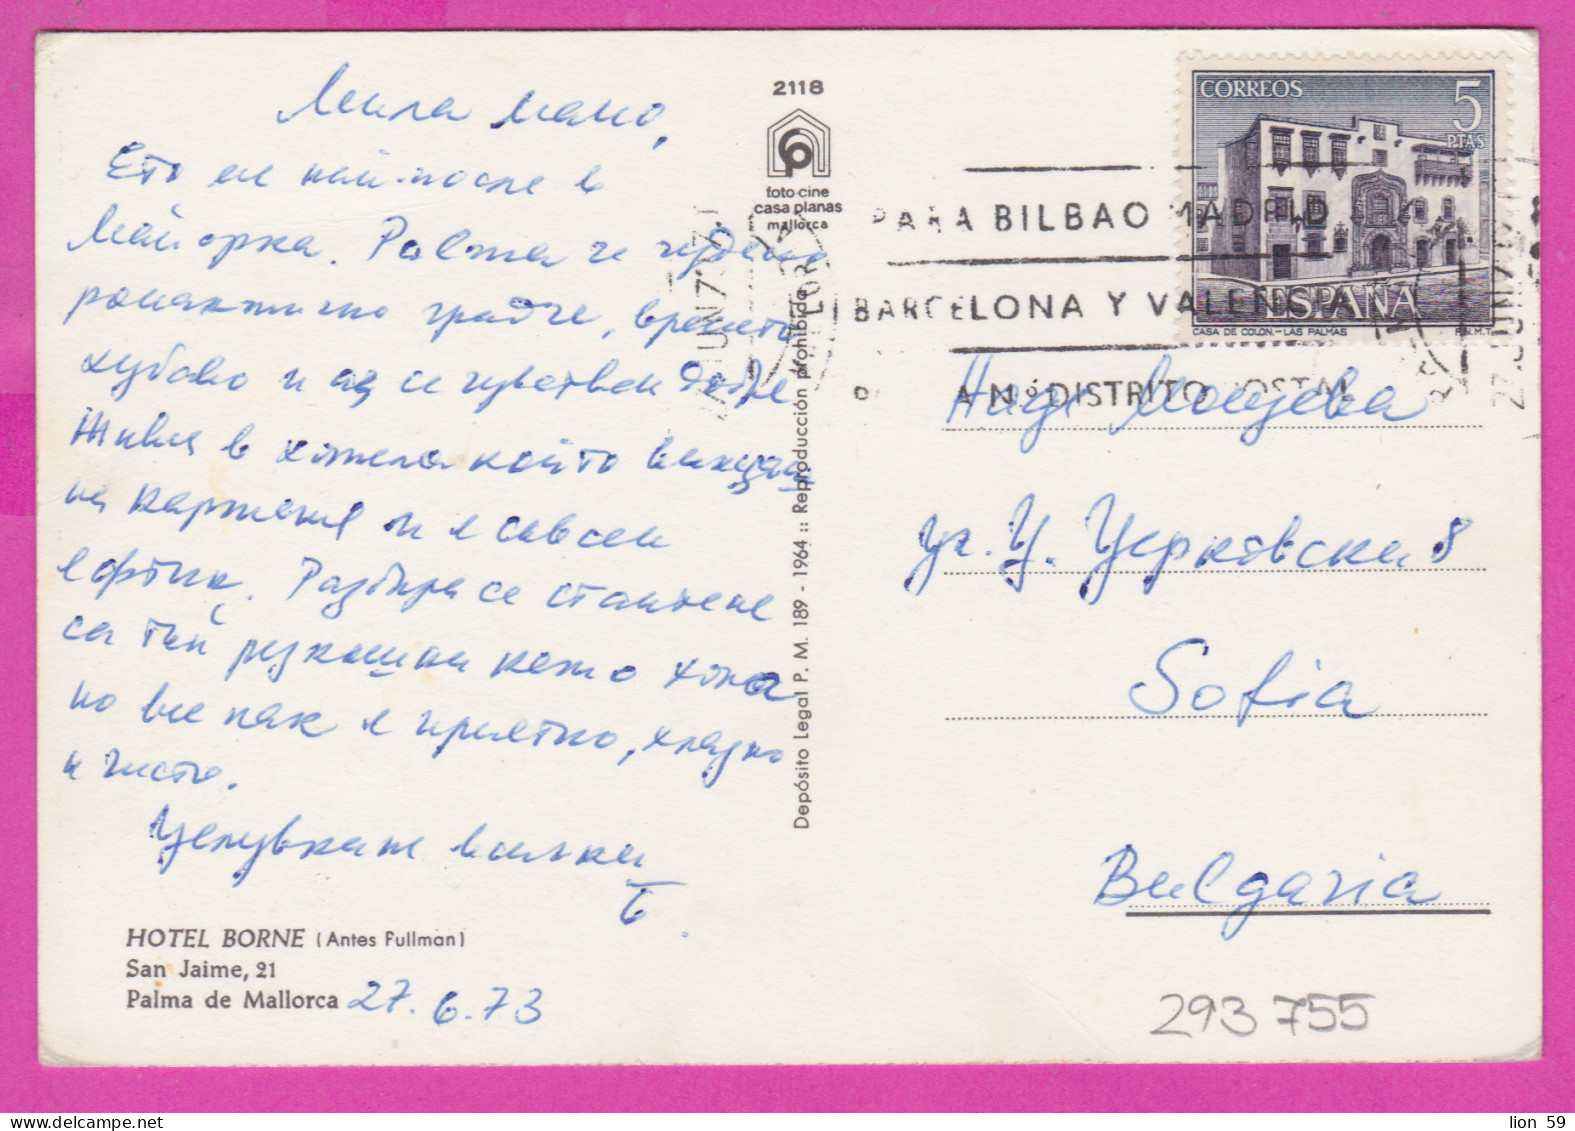 Мила мамо,
Ето ме най-после в
Майорка. Palma е чудено
романтично градче, времето
хубаво и аз се чувствам добре
Живея в хотела който виждаш
на картичка и е съвсем
евтин. Разбира се стаите не
са тъй разкошни като хола
но все пак е приятно, хладно
и чисто.
Целувки на всички
HOTEL BORNE (Antes Fullman)
San Jaime, 21
Palma de Mallorca 27.6.73
2118
foto-cine
casa planas
mallorca
Depósito Legal P. M. 189 - 1964 :: Reproducción prohibida
PARA BILBAO MADRID
BARCELONA Y VALENCIA
DISTRITO POSTAL
CORREOS
5
PTAS
ESPAÑA
CASA DE COLON.-LAS PALMAS
F.N.M.T.
ул. Ц. Церковски 8
Sofia
Bulgaria
293755
lion 59